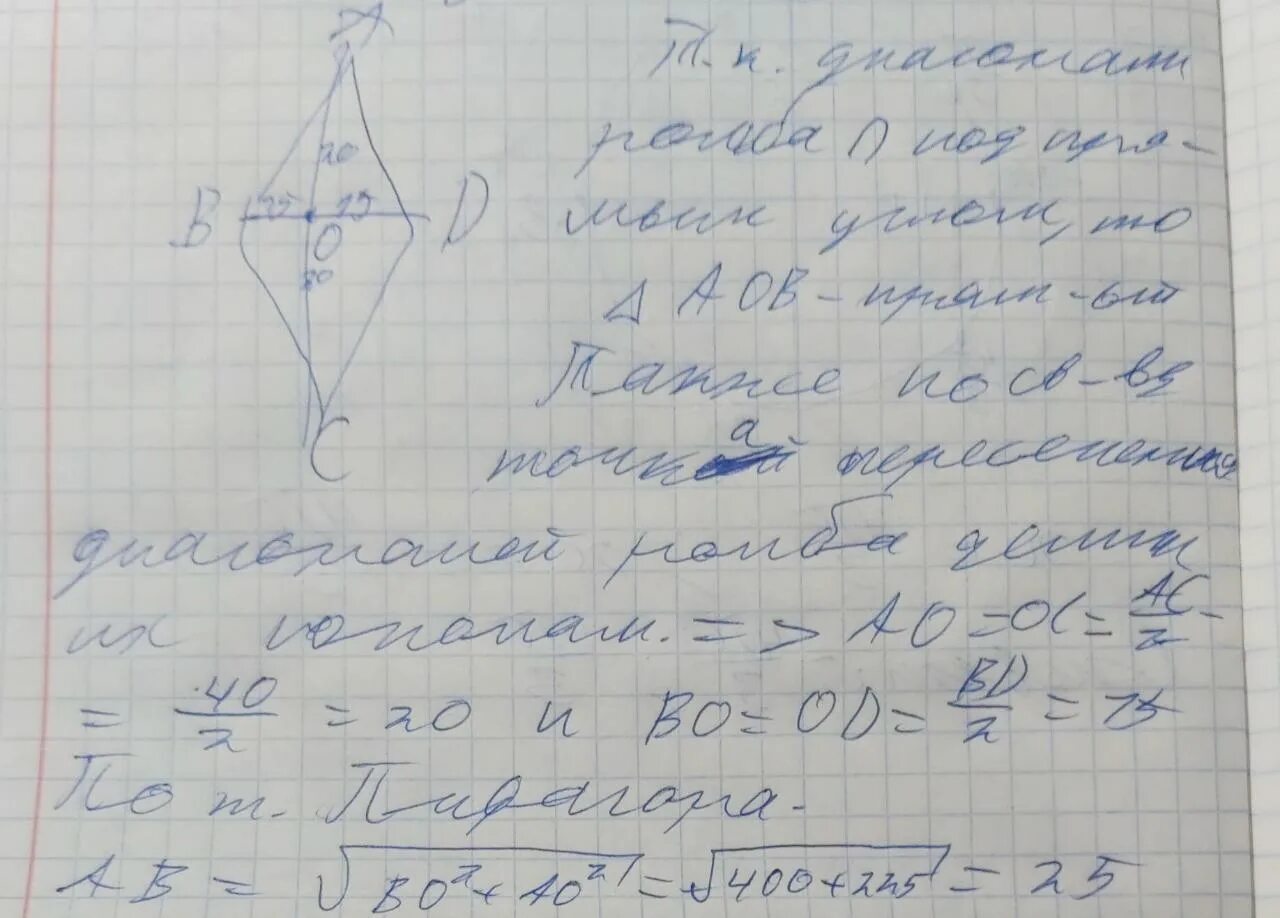 A
20
B 15 15 D
O
20
C
Т.к. диагонали
ромба ∩ под пря-
мым углом, то
△ AOB - прям-ый
Также по св-ву
точка пересечения
диагоналей ромба делит
их пополам. => AO = OC = AC/2 =
= 40/2 = 20 и BO = OD = BD/2 = 15
По т. Пифагора.
AB = √BO²+AO² = √400+225 = 25